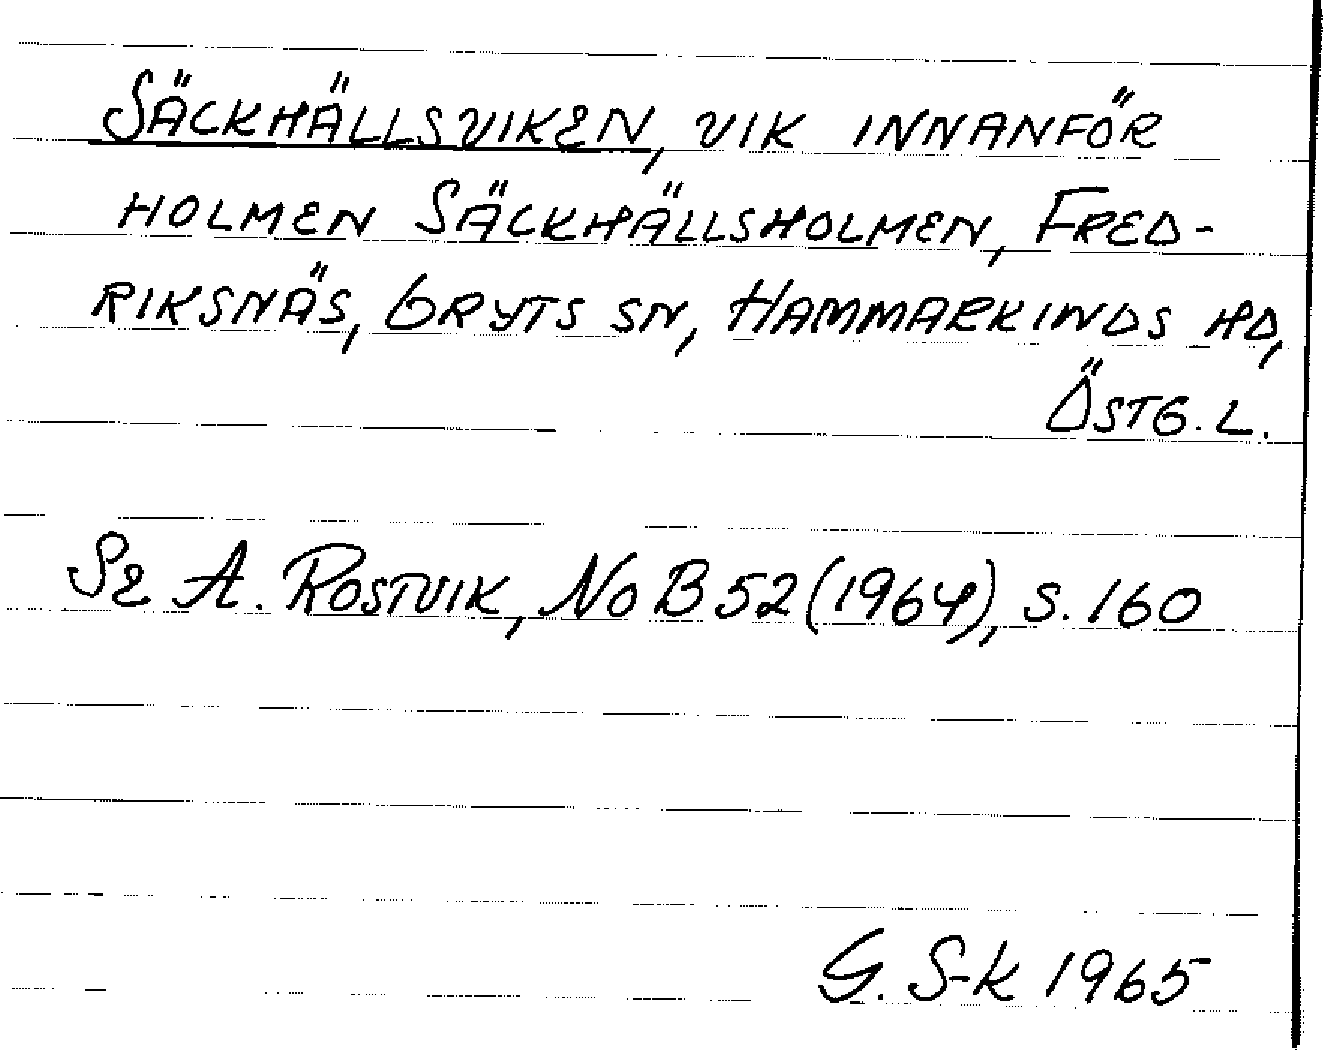 SÄCKHÄLLSVIKEN, VIK INNANFÖR
HOLMEN SÄCKHÄLLSHOLMEN, FRED-
RIKSNÄS, GRYTS SN, HAMMARKINDS HD,
ÖSTG. L.
Se A. ROSTVIK, NoB 52 (1964), S. 160
G. S-K 1965